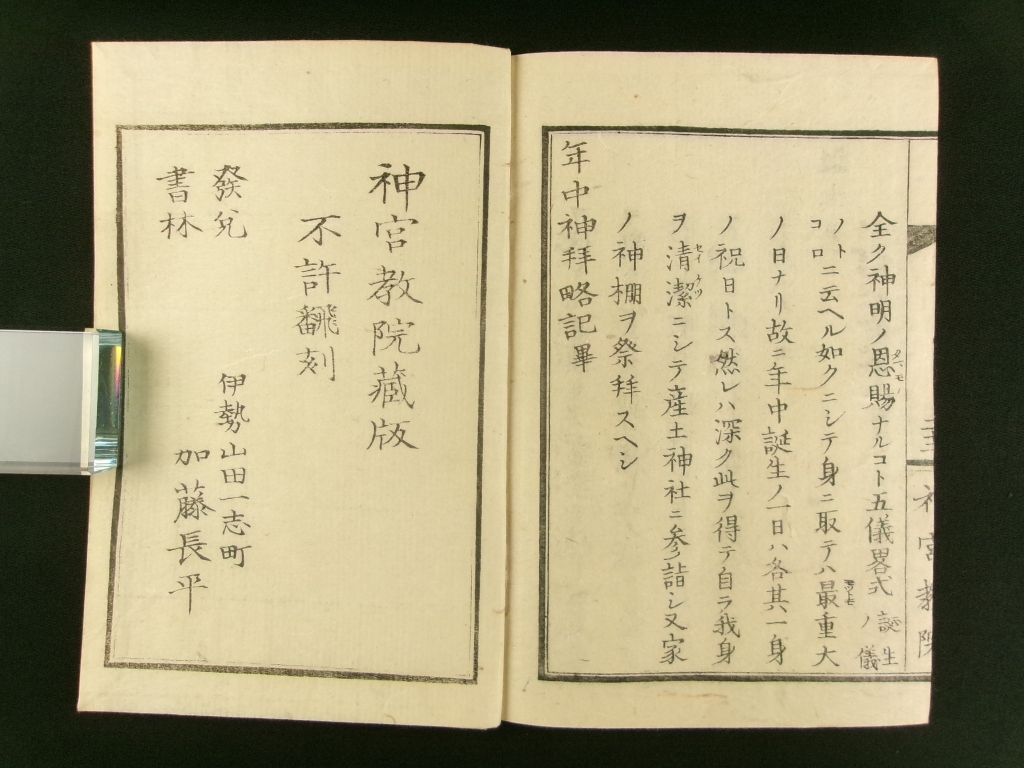 全ク神明ノ恩賜ナルコト五儀畧式誕生ノ儀
ノトコロニ云ヘル如クニシテ身ニ取テハ最重大
ノ日ナリ故ニ年中誕生ノ一日ハ各其一身
ノ祝日トス然レハ深ク此ヲ得テ自ラ我身
ヲ清潔ニシテ産土神社ニ参詣シ又家
ノ神棚ヲ祭拜スヘシ
年中神拜略記畢
神宮教院藏版
不許飜刻
發兌
書林
伊勢山田一志町
加藤長平